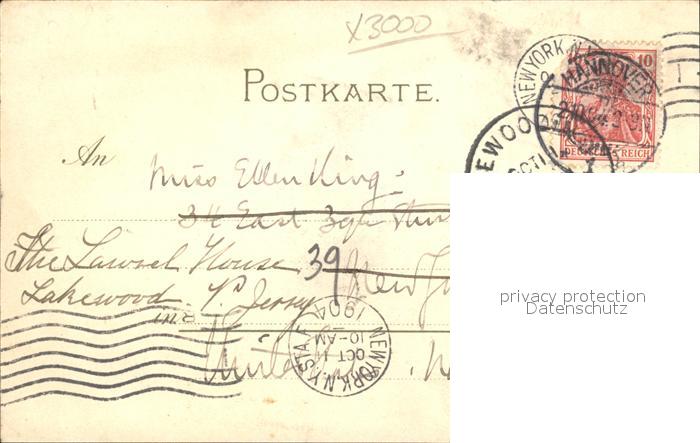 X3000
POSTKARTE.
NEW YORK, N.Y.
HANNOVER
10
DEUTSCHES REICH
EWOOD
OCT 1
An
Miss Ellen King.
34 East
The Laurel House 39 New
Lakewood N. Jersey
United
NEW YORK, N.Y. STA.
OCT 1
10-AM
1904
privacy protection
Datenschutz